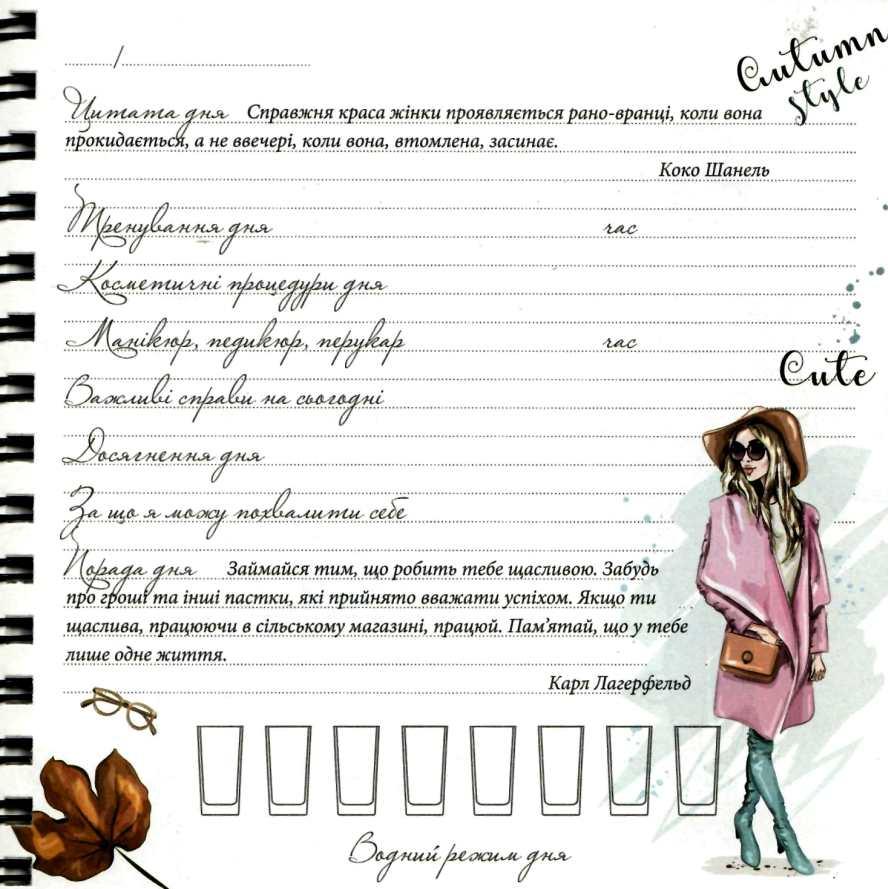 Autumn
style
/
Цитата дня Справжня краса жінки проявляється рано-вранці, коли вона
прокидається, а не ввечері, коли вона, втомлена, засинає.
Коко Шанель
Тренування дня час
Косметичні процедури дня
Манікюр, педикюр, перукар час
Cute
Важливі справи на сьогодні
Досягнення дня
За що я можу похвалити себе
Порада дня Займайся тим, що робить тебе щасливою. Забудь
про гроші та інші пастки, які прийнято вважати успіхом. Якщо ти
щаслива, працюючи в сільському магазині, працюй. Пам'ятай, що у тебе
лише одне життя.
Карл Лагерфельд
Водний режим дня